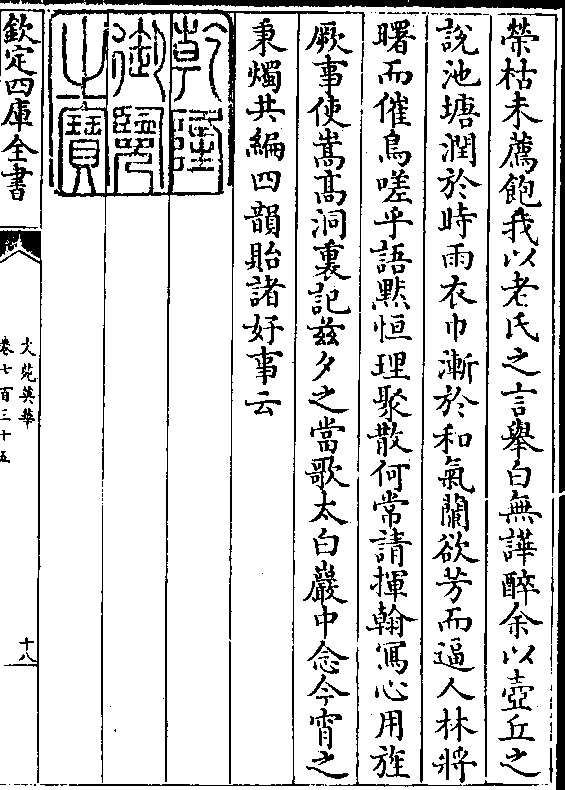 榮枯未薦飽我以老氏之言舉白無譁醉余以壺丘之
說池塘潤於時雨衣巾漸於和氣蘭欲芳而逼人林將
曙而催鳥嗟乎語黙恒理聚散何常請揮翰寫心用旌
厥事使嵩髙洞裏記茲夕之當歌太白巖中念今宵之
秉燭共編四韻貽諸好事云
乾隆御覽之寶
欽定四庫全書
文苑英華
卷七百三十五
十八